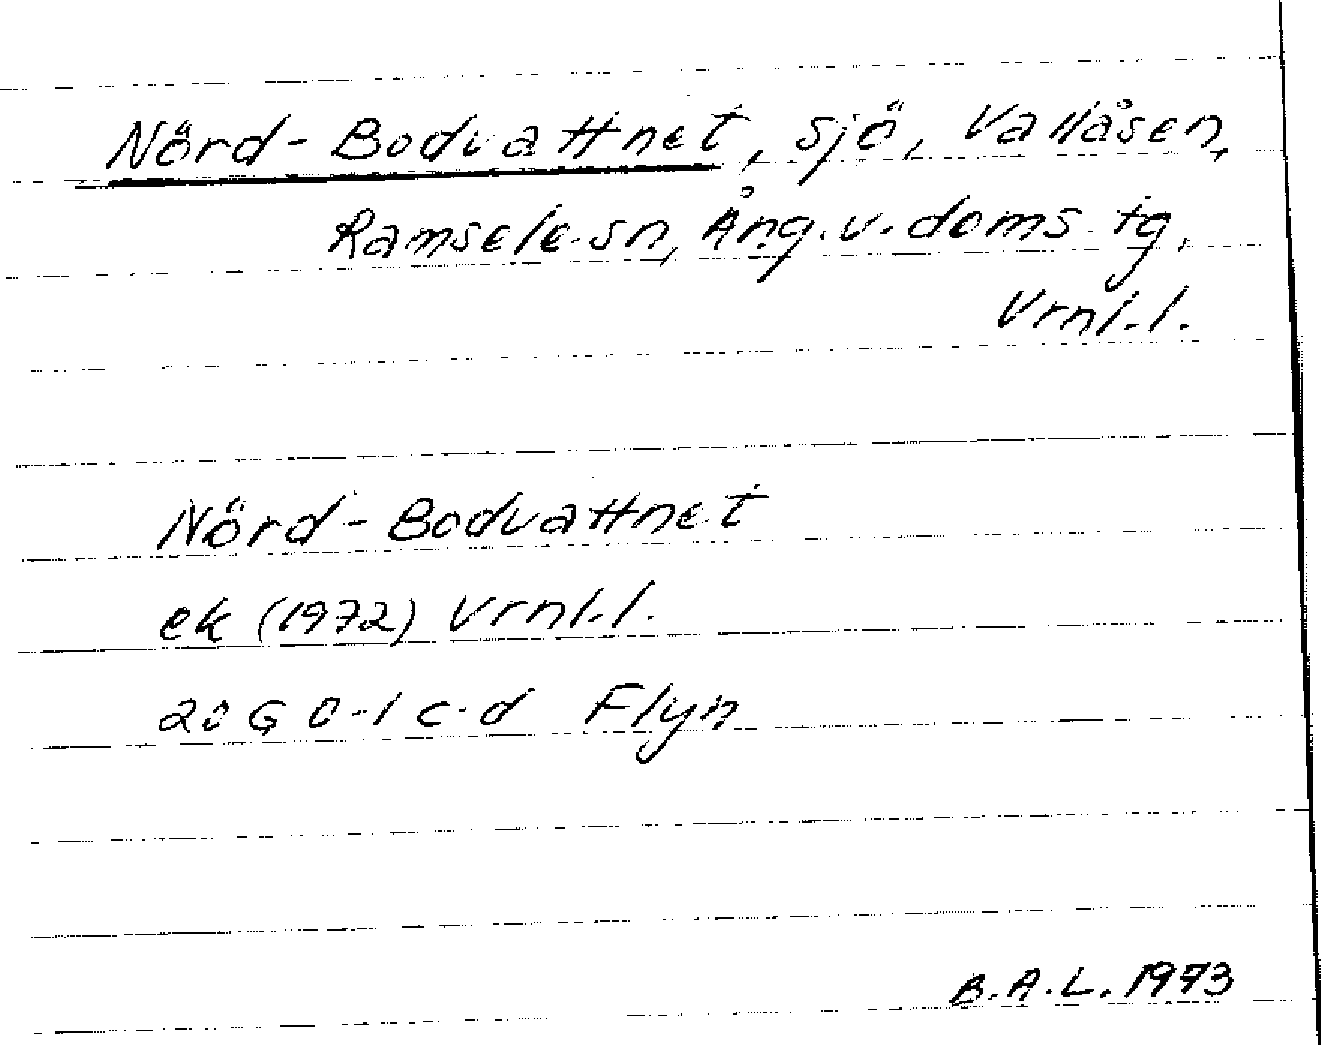 Nörd-Bodvattnet, sjö, Vallåsen,
Ramsele sn, Ång. v. doms. tg,
Vrnl. l.
Nörd-Bodvattnet
ek (1972) Vrnl. l.
20 G 0-1 c-d Flyn
B.A.L. 1973